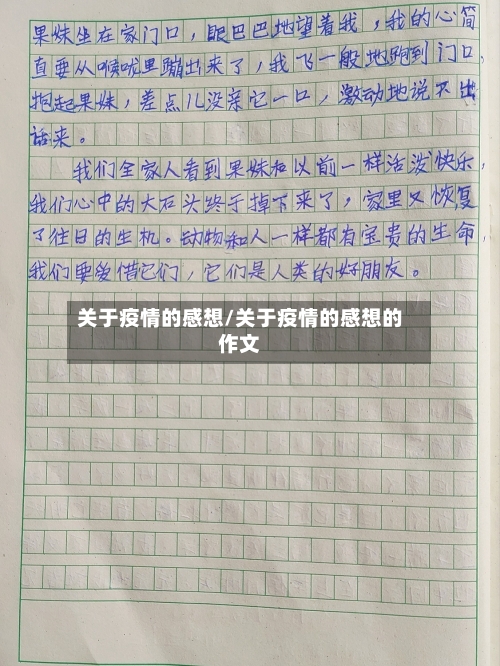 果妹坐在家门口，眼巴巴地望着我，我的心简
直要从喉咙里蹦出来了，我飞一般地跑到门口，
抱起果妹，差点儿没亲它一口，激动地说不出
话来。
我们全家人看到果妹和以前一样活泼快乐，
我们心中的大石头终于掉下来了，家里又恢复
了往日的生机。动物和人一样都有宝贵的生命，
我们要爱惜它们，它们是人类的好朋友。
关于疫情的感想/关于疫情的感想的
作文